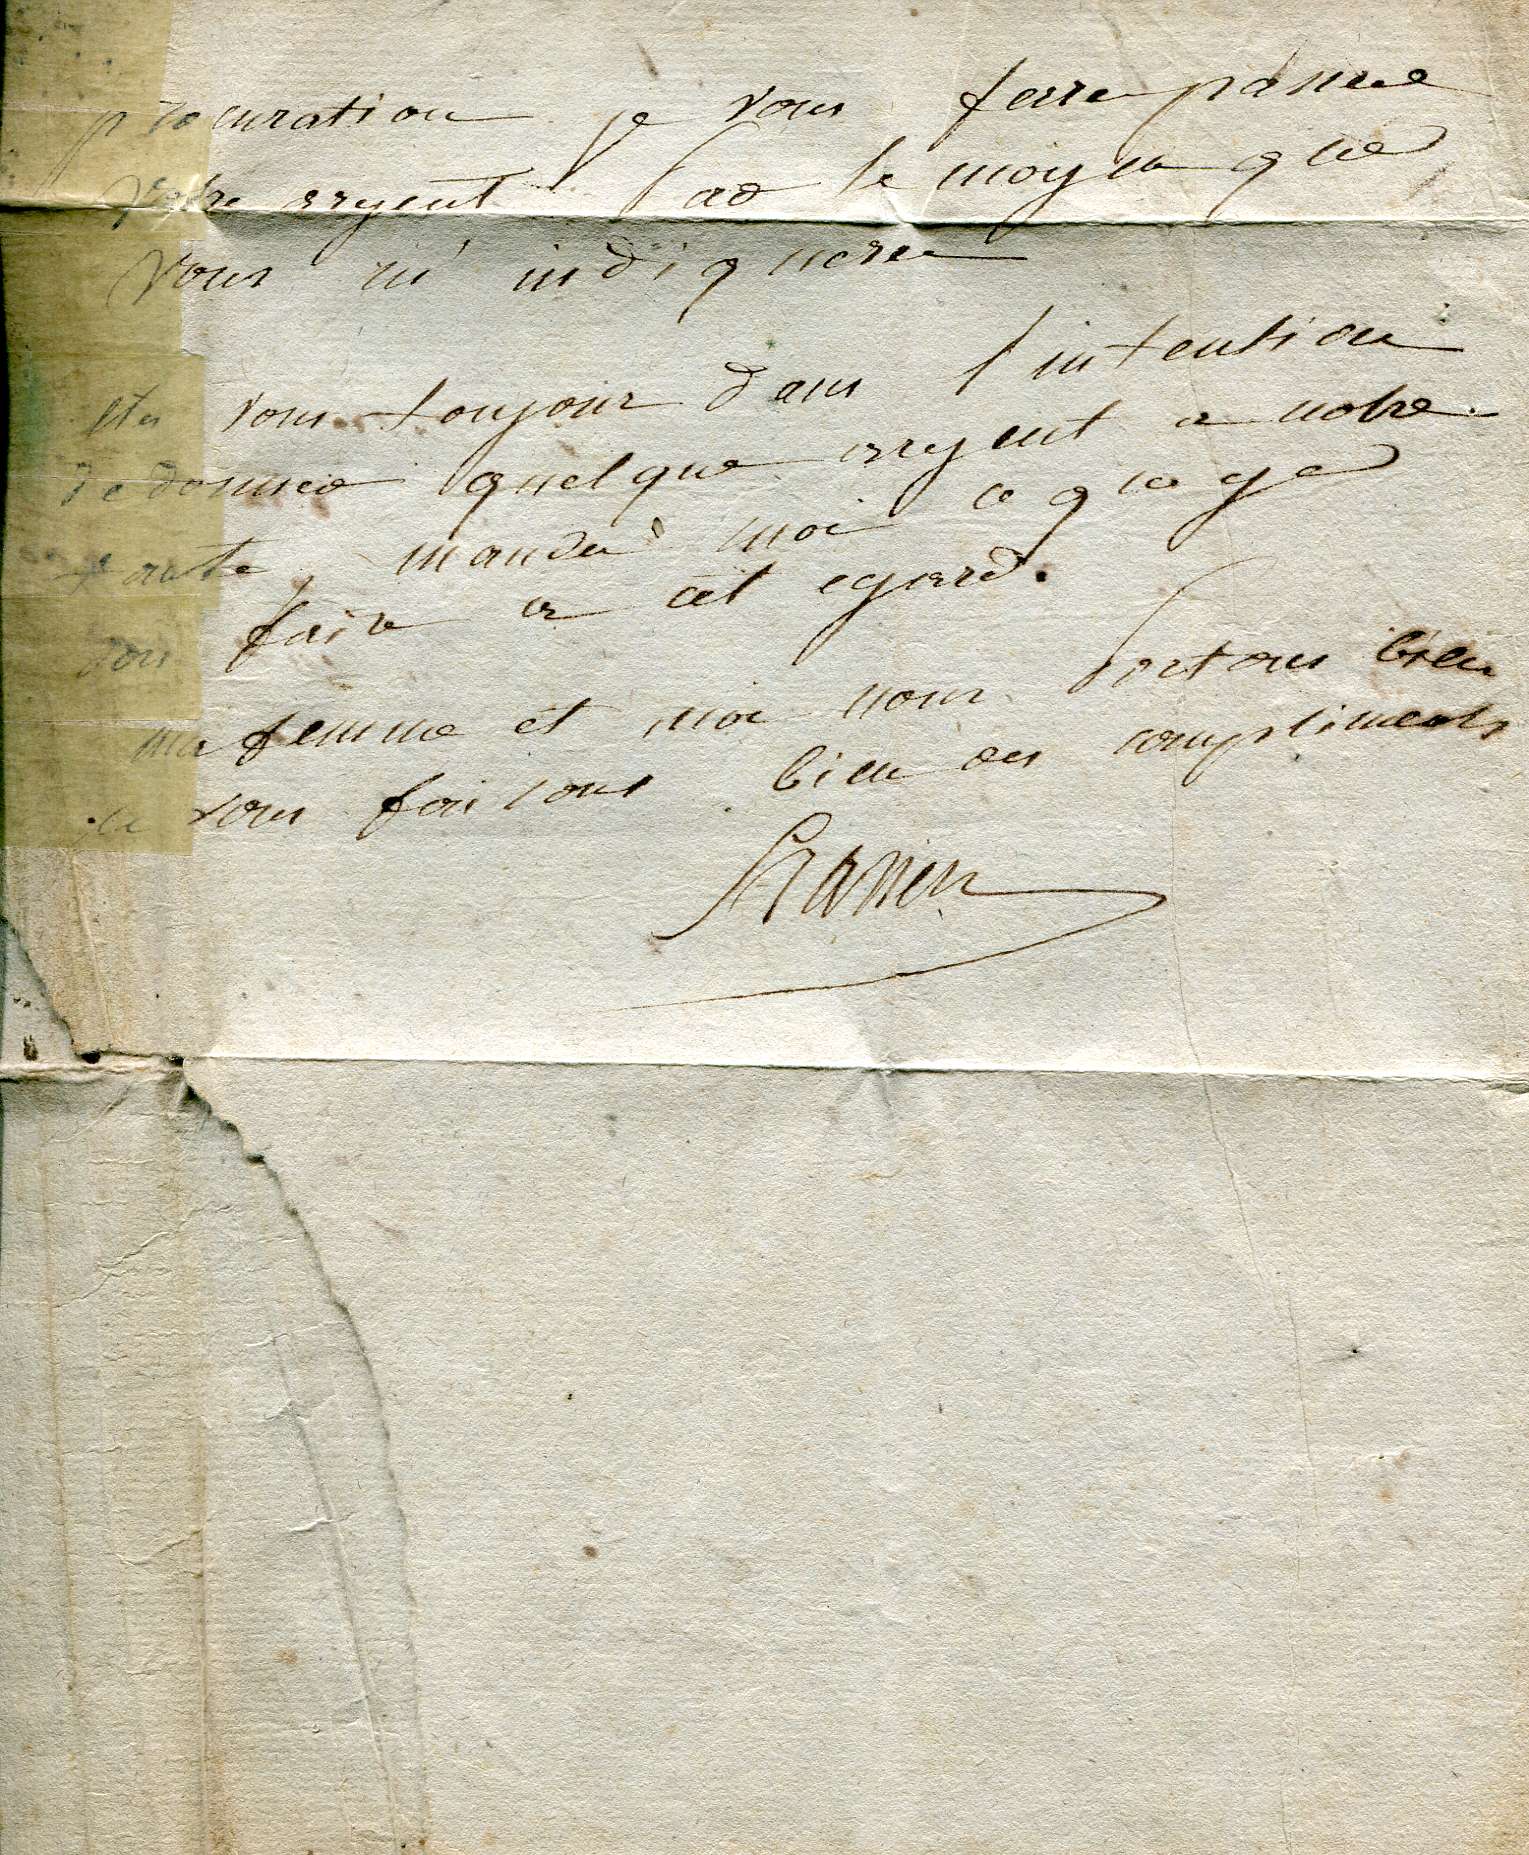 procuration je vous ferre passere
votre argent par le moyen que
vous m'indiquerer
etes vous toujour dans l'intention
de donnée quelque argent a notre
tante, mandee moi ce que je
dois faire a cet egard.
ma femme et moi nous portons bien
et vous faisons bien des compliments